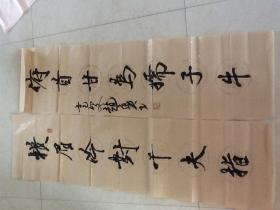 俯首甘為孺子牛
横眉冷對千夫指